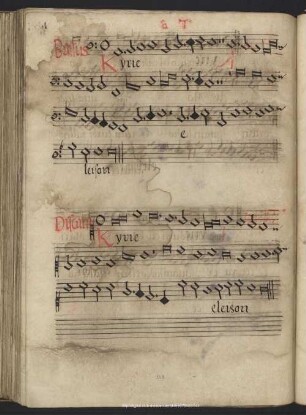 Bassus
Kyrie
e
leison
Discant
Kyrie
eleison